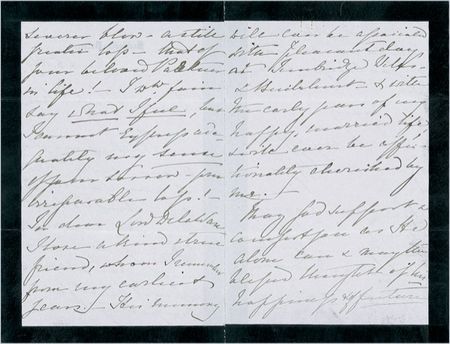 severer blow – a still
greater loss – that of
your beloved Partner
in life! – I wd fain
say what I feel, but
I cannot express ade-
quately my sense
of your sorrow – yr
irreparable loss! –
In dear Lord Delawarr
I lose a kind & true
friend, whom I remember
from my earliest
years – His memory
will ever be associated
with pleasant days
at Tunbridge Wells
& Buckhurst – & with
the early years of my
happy, married life
& will ever be affec-
tionately cherished by
me. –
May God support &
comfort you as He
alone can & may the
blessed thought of his
happiness & future